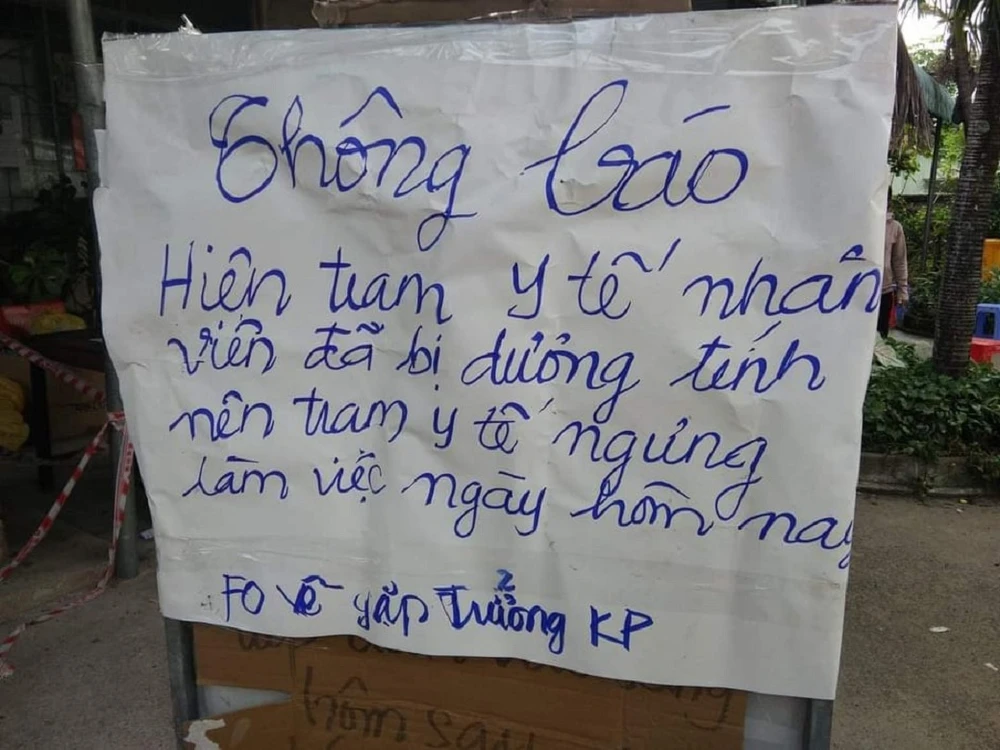 Thông báo
Hiện trạm y tế nhân
viên đã bị dương tính
nên trạm y tế ngưng
làm việc ngày hôm nay
FO về gặp Trưởng KP
hôm